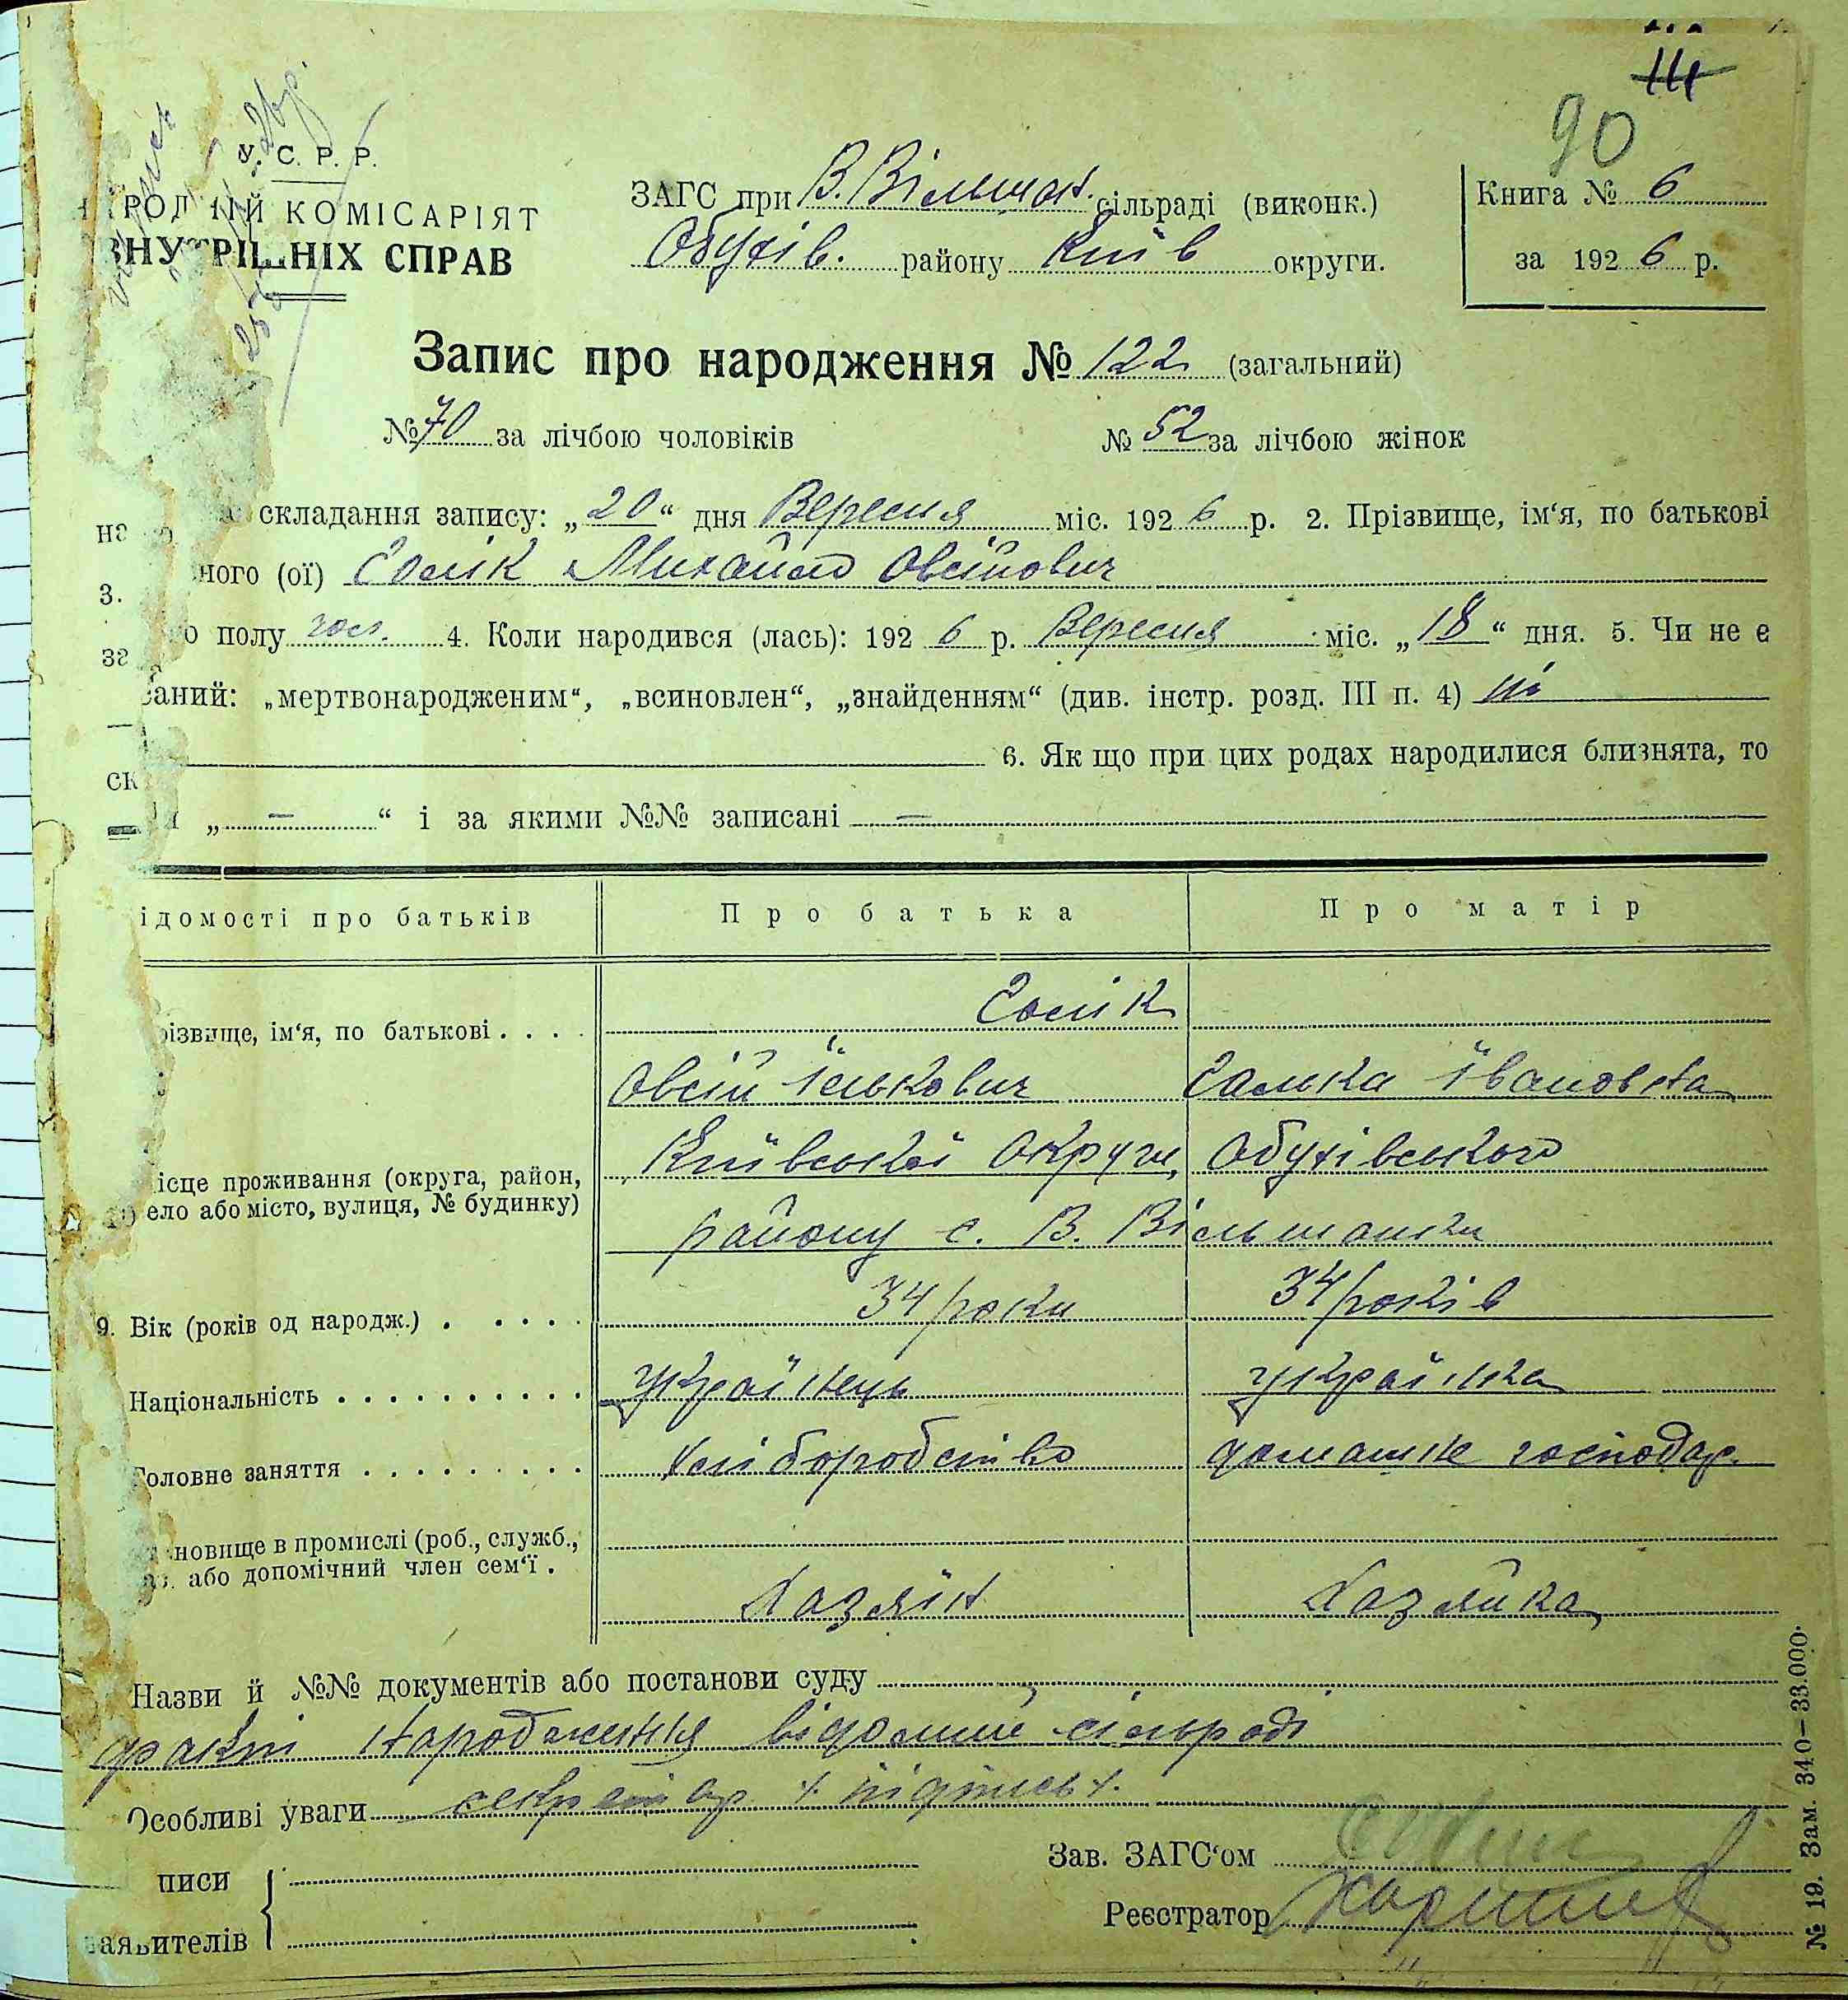 90
У. С. Р. Р.
КОМІСАРІЯТ
ВНУТРІШНІХ СПРАВ
ЗАГС при В. Вільшан. сільраді (виконк.)
Обухів. району Київ округи.
Книга № 6
за 1926 р.
Запис про народження № 122 (загальний)
№ 70 за лічбою чоловіків
№ 52 за лічбою жінок
складання запису: „20“ дня Вересня міс. 1926 р. 2. Прізвище, ім‘я, по батькові
ного (ої) Михайло Овсійович
3.
о полу чол. 4. Коли народився (лась): 1926 р. Вересня міс. „18“ дня. 5. Чи не є
заний: „мертвонародженим“, „всиновлен“, „знайденням“ (див. інстр. розд. III п. 4) ні
6. Як що при цих родах народилися близнята, то
„ — “ і за якими №№ записані —
ідомості про батьків
Про батька
Про матір
різвище, ім‘я, по батькові . . . .
Овсій Ївановна
ісце проживання (округа, район,
ело або місто, вулиця, № будинку)
Київської округи, Обухівського
району с. В. Вільшанки
9. Вік (років од народж.) . . . . .
34 роки
34 років
Національність . . . . . . . . . .
Українець
Українка
Головне заняття . . . . . . . . .
хліборобство
домашнє господар.
новище в промислі (роб., служб.,
або допомічний член сем‘ї .
Хазяїн
Хазяйка
Назви й №№ документів або постанови суду
факт народження відомий сільраді
Особливі уваги секретар
писи
заявителів
Зав. ЗАГС‘ом
Реєстратор
№ 19. Зам. 340–33.000.